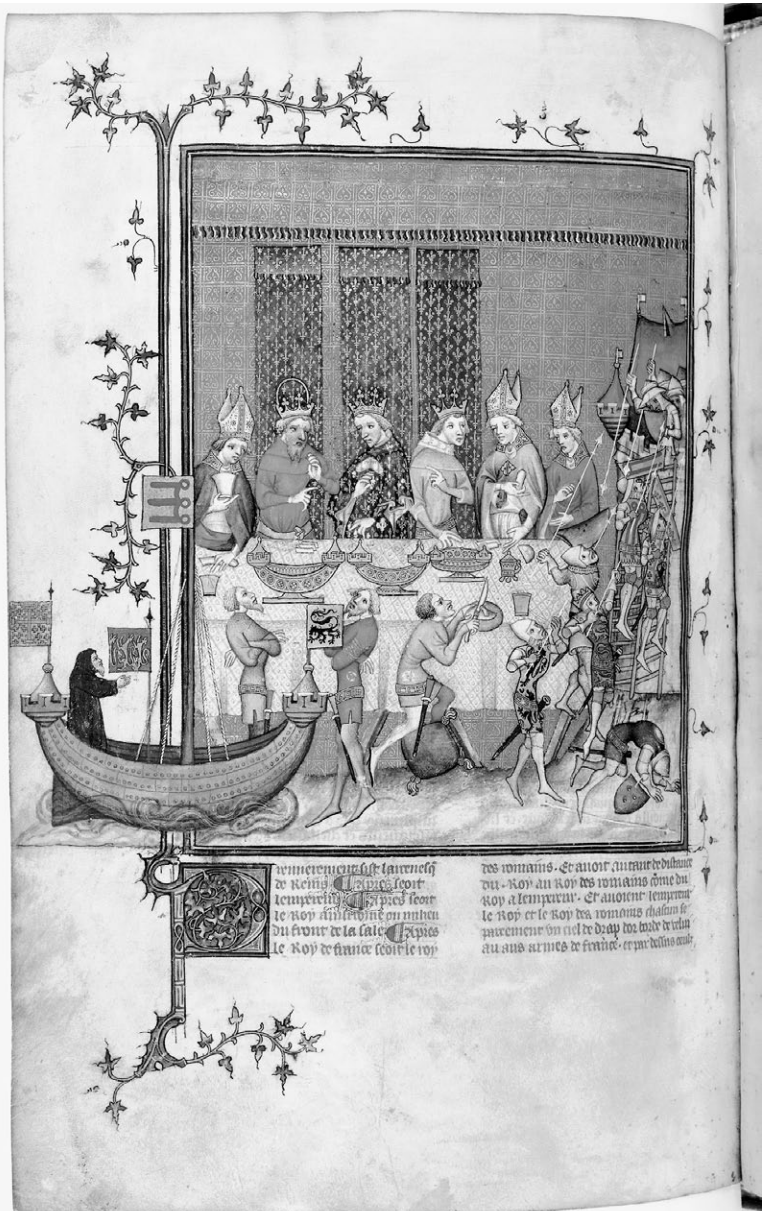 Premierement sist larcevesq
de Reins Apres seoit
lempereur Apres seoit
le Roy
du front de la sale Apres
le Roy de france seoit le roy
des romains. Et avoit autant de distance
du. Roy au Roy des romains côme du
Roy a lempereur. Et avoient lempereur
le Roy et le Roy des romains chascun se
pareement un ciel de drap dor borde de
au aus armes de france. et par dessus